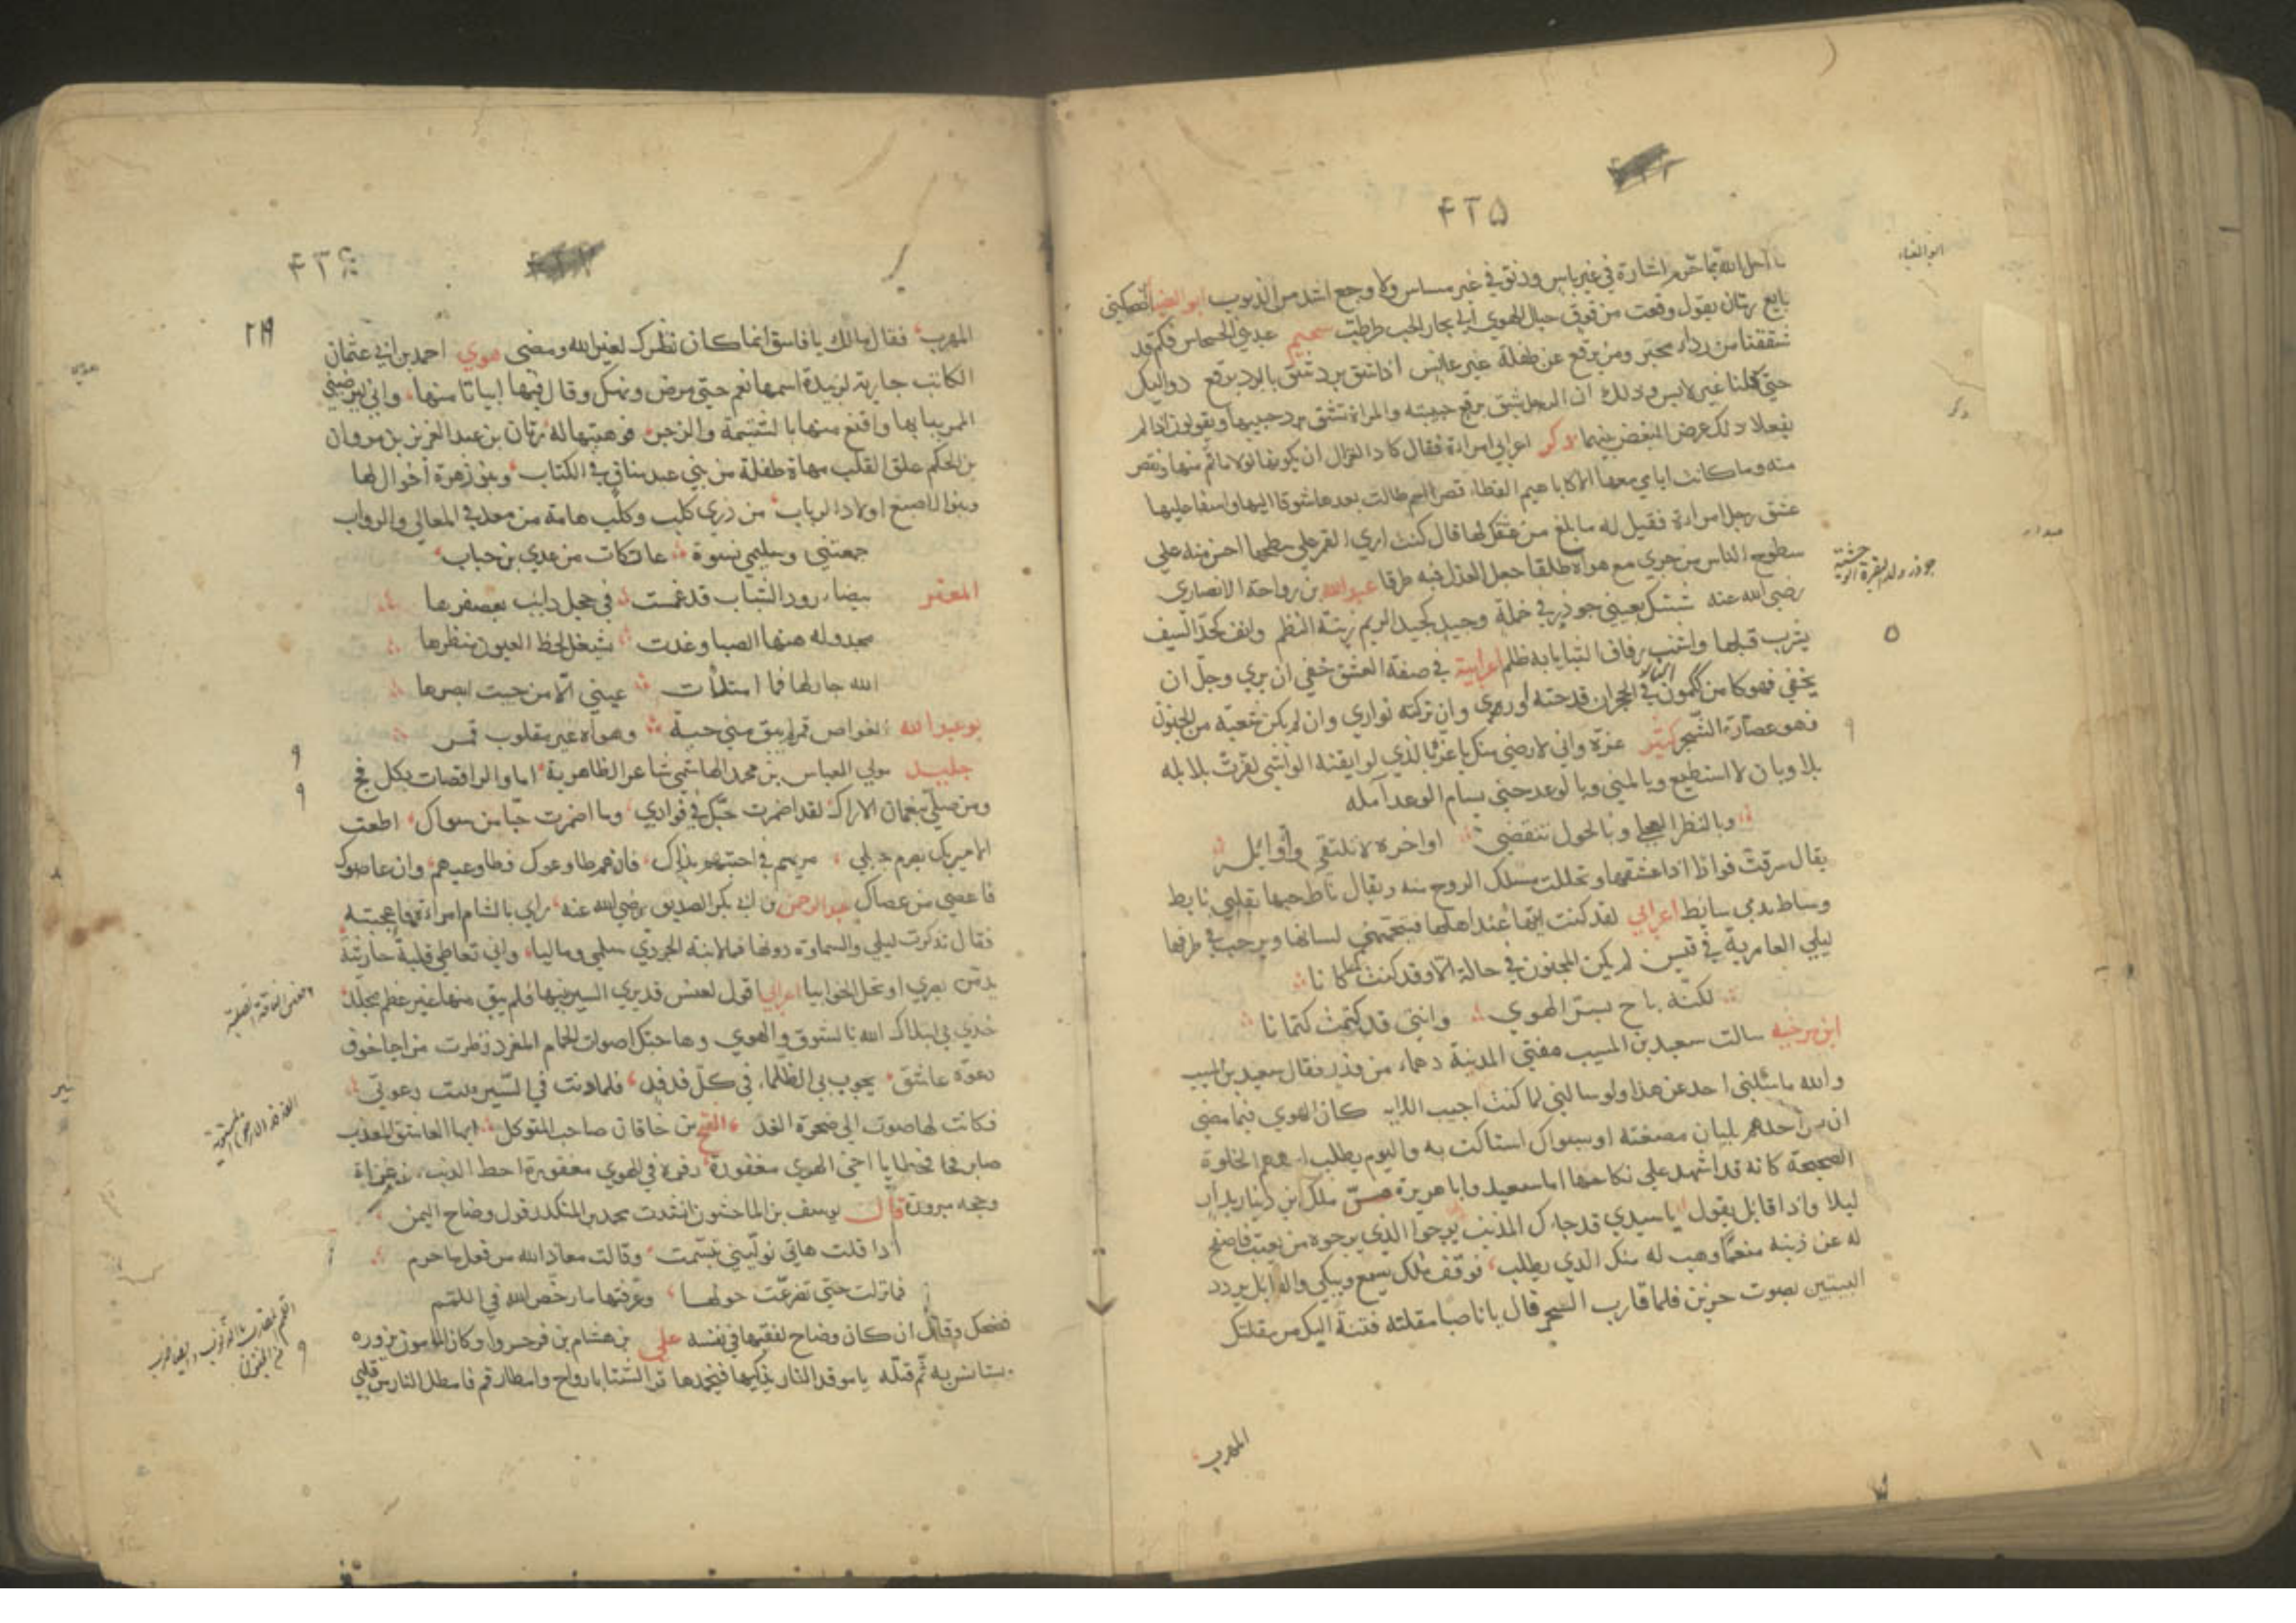 ٤٢٥
ما احل الله مما حرم اشارة في غير باس ودنو في غير مساس ولا وجع اشد من الذنوب
بايع رمان يقول وقعت من فوق جبال الهوي الي بحار الحب طرطب سحيم عبد بني الحسحاس فكم قد
شققنا من رداء محبر ومن برقع عن طفلة غير عانس اذا شق برد شق بالبرد برقع دواليك
حتي كلنا غير لابس وذلك ان الرجل يشق برقع حبيبته والمراة تشق برد حبيبها ويقولون اذا لم
يفعلا ذلك عرض البغض بينهما ذكر اعرابي امراة فقال كاد الغزال ان يكونها لولا ما تم منها ونقص
منه وما كانت ايامي معها الا كاباهيم القطا قصرا ثم طالت بعدها شوقا اليها واسفا عليها
عشق رجل امراة فقيل له ما بلغ من عشقك لها قال كنت اري القمر علي سطحها احسن منه علي
سطوح الناس من جري مع هواه طلقا جعل العذل فيه طرقا عبد الله بن رواحة الانصاري
رضي الله عنه بعيني جوذر في خملة وجيد كجيد الريم زينة النظم وانف كحد السيف
يشرب قبلها واشنب رفاف الثنايا به ظلم اعرابية في صفة العشق خفي ان يري وجل ان
يخفي فهو كامن ككمون النار في الحجر ان قدحته اوري وان تركته تواري وان لم يكن شعبة من الجنون
فهو عصارة السحر كثير عزة واني لارضي منك يا عز بالذي لو ايقنه الواشي لقرت بلابله
بلا وبان لا استطيع وبالمني وبالوعد حتي يسام الوعد آمله
وبالنظر العجلي وبالحول تنقضي اواخره لا نلتقي واوائله
يقال سرقت فواظ اذا عشقها وتخللت مسلك الروح منه ويقال ناط حبها بقلبي نايط
وساط بدمي سايط اعرابي لقد كنت اتيها عند اهلها فيتجهمني لسانها ويرحب بي طرفها
ليلي العامرية في قيس لم يكن المجنون في حالة الا وقد كنت كما كانا
لكنه باح بسر الهوي وانني قد كتمت كتمانا
ابن مرخية سالت سعيد بن المسيب مفتي المدينة من وزر فقال سعيد بن المسيب
والله ما سئلني احد عن هذا ولو سالني لما كنت اجيب الا به كان الهوي فيما مضي
ان يسر احدهم بلبان مضغته او سواك استاكت به واليوم يطلب احدهم الخلوة
الصحيحة كانه قد اشهد علي نكاحها ابا سعيد وابا هريرة مر ملك ابن دينار بدار
ليلا واذا قايل يقول يا سيدي قد جاءك المذنب يرجو الذي يرجوه من يعتب فاصفح
له عن ذنبه منعما وهب له منك الذي يطلب فوقف ملك يسمع ويبكي والقايل يردد
البيتين بصوت حزين فلما قارب السحر قال يا ناصبا مقلته فتنة اليك من مقلتك
المهرب
ابو الغناء
ذكر
٤٢٦
٢١٩
المهرب فقال مالك يا فاسق انما كان نظرك لغير الله ومضي هوي احمد بن ابي عثمان
الكاتب جارية لزبيدة اسمها نعم حتي مرض ونهك وقال فيها ابياتا منها واني ليرضيني
الممر ببابها واقنع منها بالشتيمة والزجر فوهبتها له زبان بن عبد العزيز بن مروان
بن الحكم علق القلب مهاة طفلة من بني عبد مناف في الكتاب وبنو زهرة اخوال لها
وبنو الاصبغ اولاد الرباب من ذري كلب وكلب هامة من معد في المعالي والروابي
جمعتني وسليمي نسوة عاتكات من عدي بن حباب
بيضاء رود الشباب قد غمست في خجل دايب يعصفرها
مجدولة هزها الصبا وغدت يشغل لحظ العيون منظرها
الله جار لها فما امتلأت عيني الا من حيث ابصرها
بو عبد الله الغواص قمر لم يبق مني حبه وهواه غير مقلوب قمر
مولي العباس بن محمد الهاشمي شاعر الظاهرية اما والراقصات بكل فج
ومن صلي بنعمان الاراك لقد اضمرت حبك في فوادي وما اضمرت حبا من سواك اطعت
الاميريك بصرم حبلي مريهم في احبتهم بذاك فان هم طاوعوك فطاوعيهم وان عاصوك
فاعصي من عصاك عبد الرحمن بن ابي بكر الصديق رضي الله عنه راي بالشام امراة فاعجبته
فقال تذكرت ليلي والسماوة دونها فما لابنة الجودي سلمي وماليا واني تعاطي قلبه حارثية
تدمن بصري او تحل الخوابيا اعرابي اقول لعنس قد بري السير نيها فلم يبق منها غير عظم مجلد
خذي بي ابتلاك الله بالشوق والهوي وهاجتك اصوات الحمام المغرد فطرت مراحا خوف
دعوة عاشق يجوب بي الظلماء في كل فدفد فلما ونت في السير ثنت دعوتي
فكانت لها صوت الي ضحوة الغد الفتح بن خاقان صاحب المتوكل ايها العاشق المعذب
صابر فخطايا اخي الهوي مغفورة زفرة في الهوي احط لذنب من غزاة
وحجة مبرورة قال يوسف بن الماجشون انشدت محمد بن المنكدر قول وضاح اليمن
اذا قلت هاتي نوليني تبسمت وقالت معاذ الله من فعل ما حرم
فما نزلت حتي تضرعت حولها وعرفتها ما رخص الله في اللمم
فضحك وقال ان كان وضاح لفقيها في نفسه علي بن هشام بن فرخسروا وكان المامون يزوره
ويستانس به ثم قتله يا موقد النار يذكيها فيخمدها قر الشتا بارواح وامطار قم فاصطل النار من قلبي